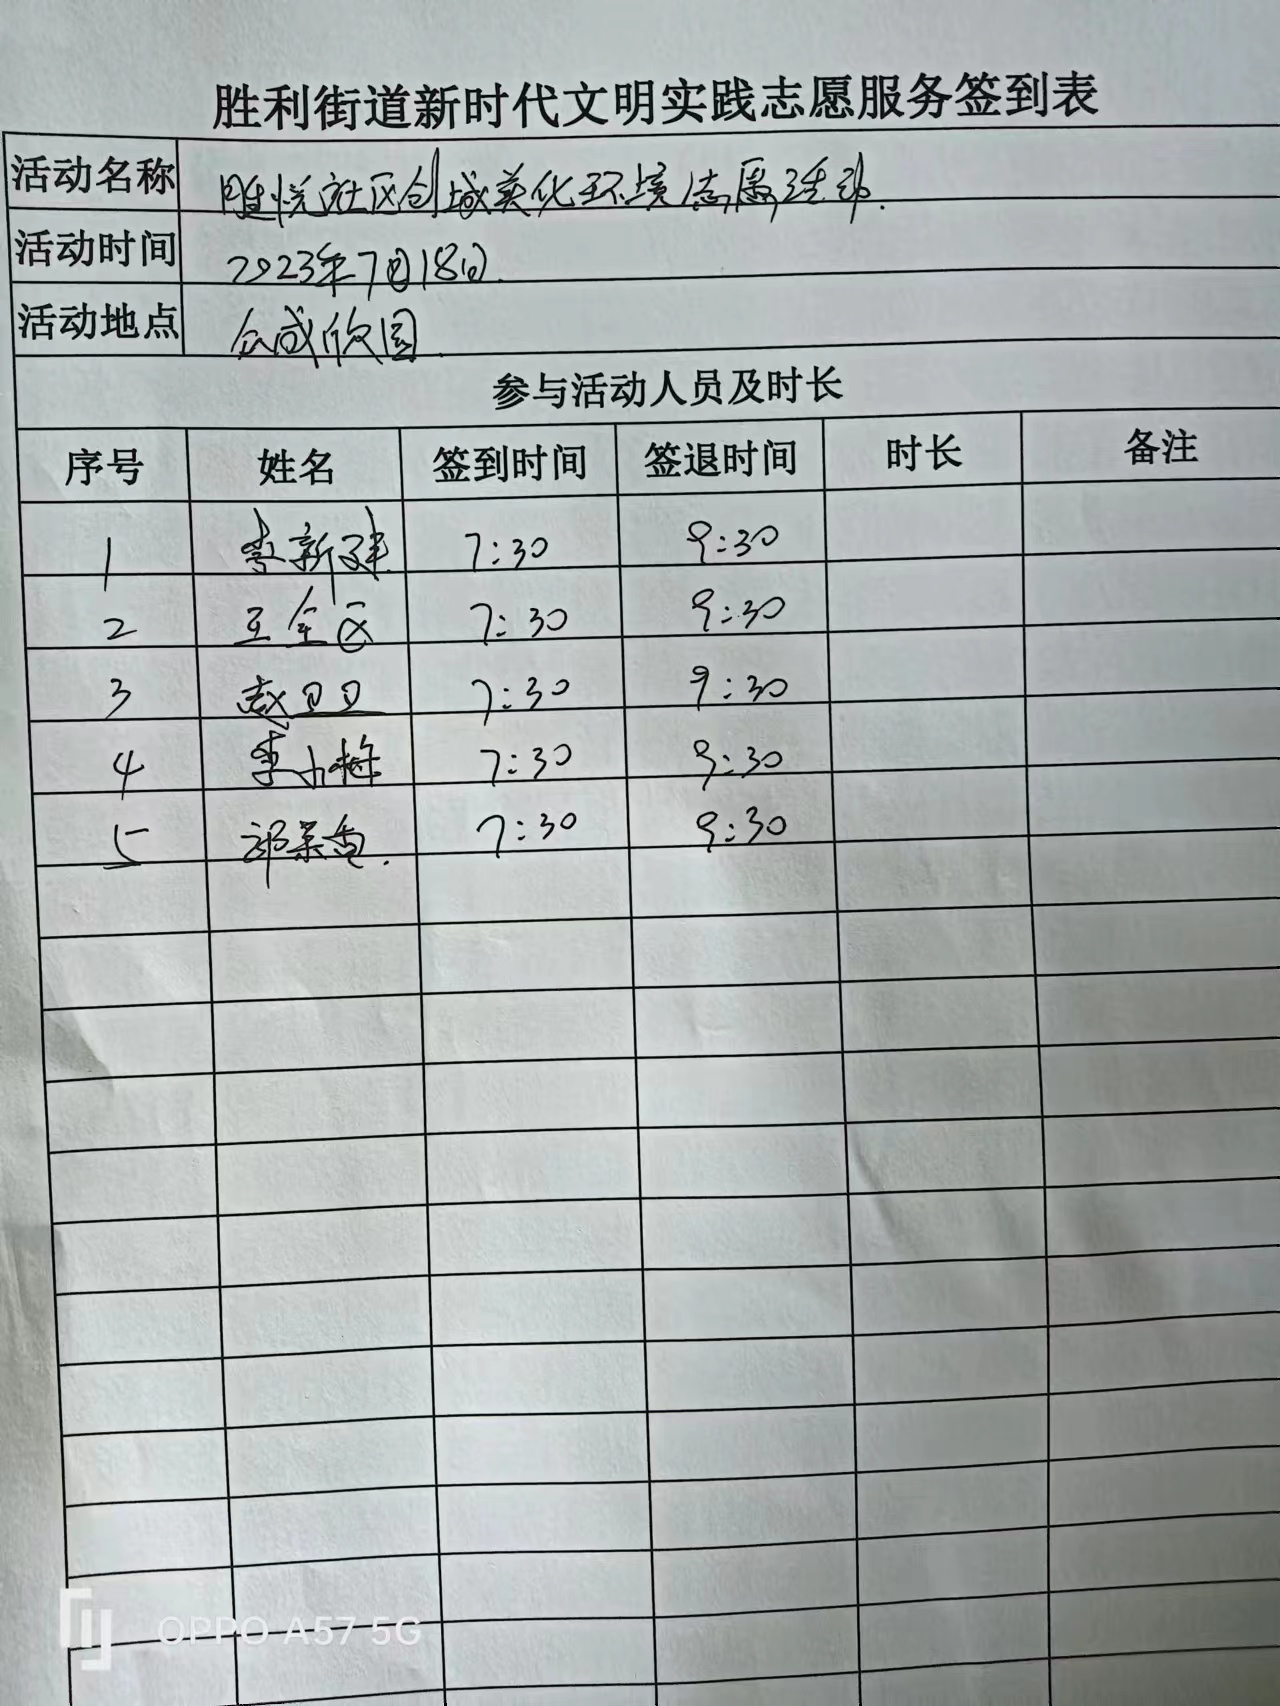 胜利街道新时代文明实践志愿服务签到表
活动名称 胜悦社区创城美化环境志愿活动.
活动时间 2023年7月18日.
活动地点 合成欣园.
参与活动人员及时长
序号 姓名 签到时间 签退时间 时长 备注
1 李新建 7:30 9:30
2 王全区 7:30 9:30
3 赵卫卫 7:30 9:30
4 李小梅 7:30 9:30
5 邵荣香. 7:30 9:30
OPPO A57 5G